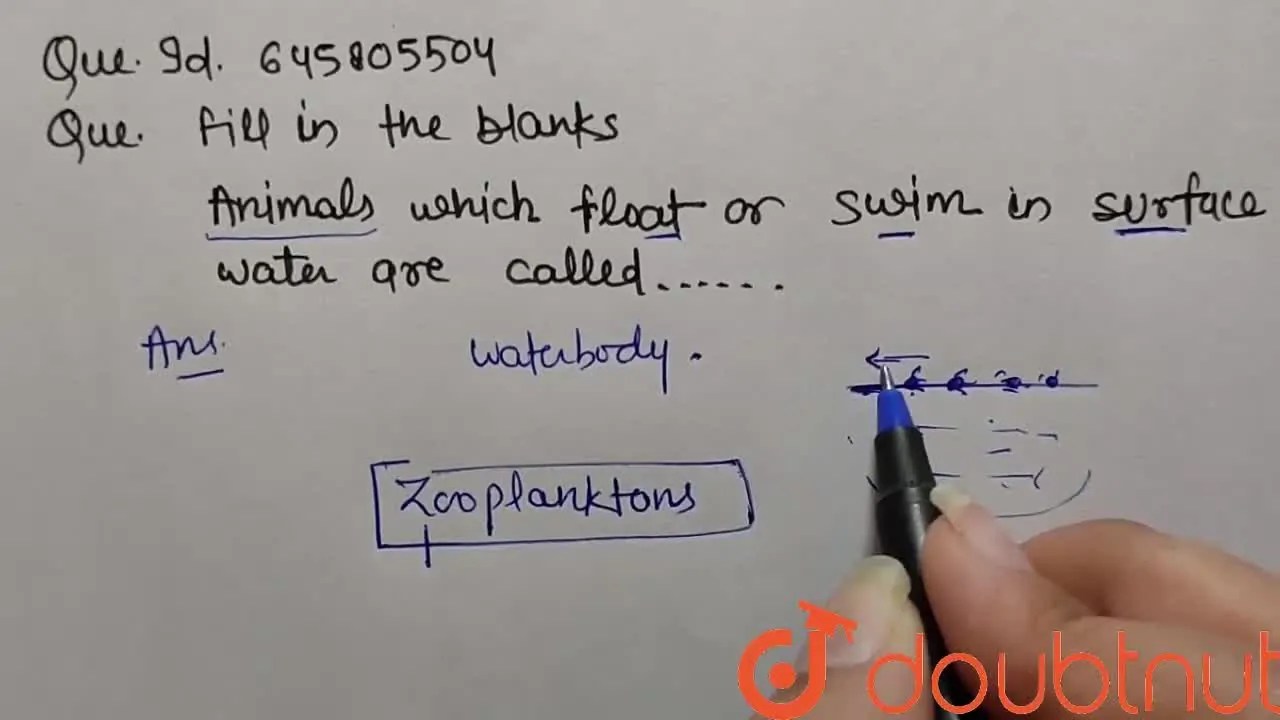 Que. Id. 645805504
Que. Fill in the blanks
Animals which float or swim in surface
water are called......
Ans. waterbody.
Zooplanktons
doubtnut